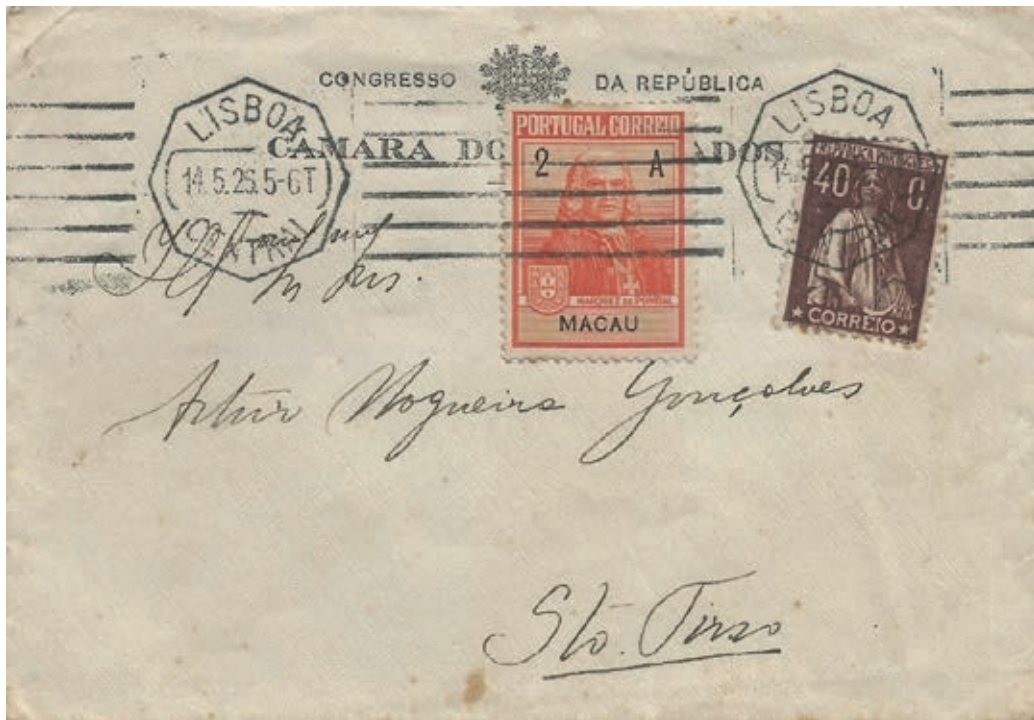 CONGRESSO DA REPÚBLICA
CÂMARA DOS
LISBOA
14.5.25.5-6T
CENTRAL
LISBOA
PORTUGAL CORREIO
2 A
MARQUEZ DE POMBAL
MACAU
REPUBLICA PORTUGUESA
40 C.
CORREIO
Artur Nogueira Gonçalves
Sto. Tirso